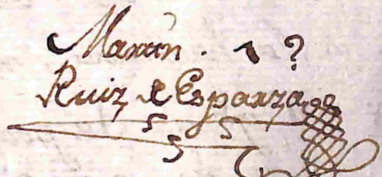 Martin
Ruiz de Esparza